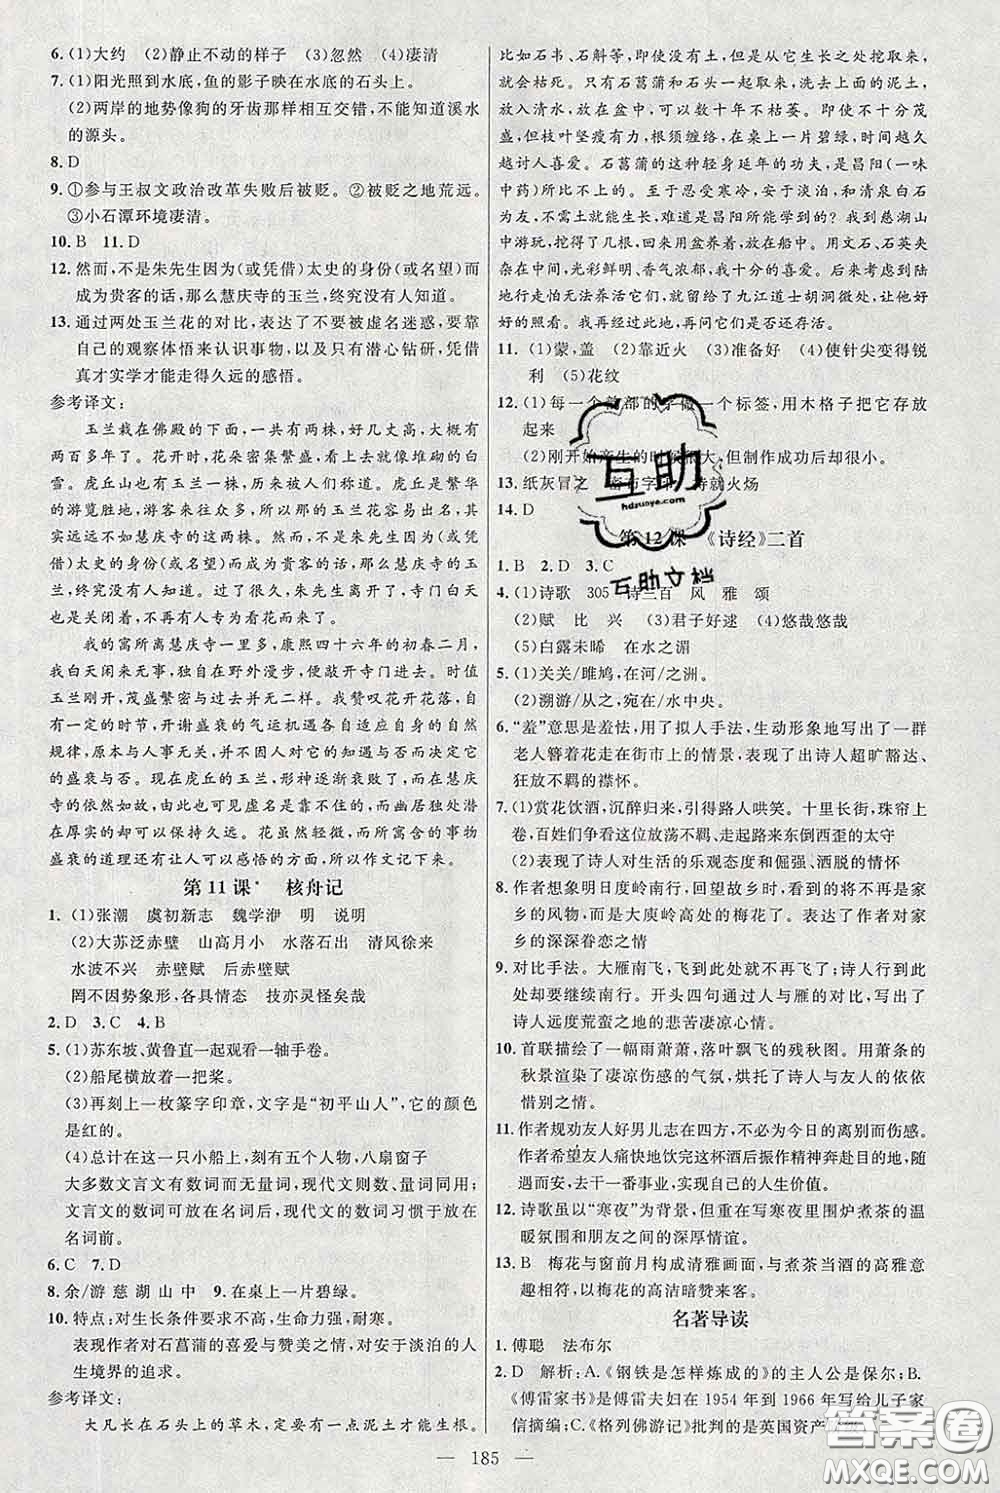 6. (1)大约 (2)静止不动的样子 (3)忽然 (4)凄清
7. (1)阳光照到水底,鱼的影子映在水底的石头上。
(2)两岸的地势像狗的牙齿那样相互交错,不能知道溪水
的源头。
8. D
9. ①参与王叔文政治改革失败后被贬。②被贬之地荒远。
③小石潭环境凄清。
10. B 11. D
12. 然而,不是朱先生因为(或凭借)太史的身份(或名望)而
成为贵客的话,那么慧庆寺的玉兰,终究没有人知道。
13. 通过两处玉兰花的对比,表达了不要被虚名迷惑,要靠
自己的观察体悟来认识事物,以及只有潜心钻研,凭借
真才实学才能走得久远的感悟。
参考译文:
玉兰栽在佛殿的下面,一共有两株,好几丈高,大概有
两百多年了。花开时,花朵密集繁盛,看去就像堆砌的白
雪。虎丘山也有玉兰一株,被人们称赞。虎丘是繁华
的游览胜地,游客很多,所以(那里的玉兰)容易得名,其
实远远不如慧庆寺的玉兰。然而,不是朱先生因为(或凭
借)太史的身份(或名望)而成为贵客的话,那么慧庆寺的
玉兰,终究没有人知道。过了很久,朱先生离开了,寺门白天
也是关闭的,不再有人专为看花而来了。
我的寓所离慧庆寺一里多,康熙四十六年的初春二月,
我白天闲来无事,独自在野外漫步,便敲开寺门进去。时值
玉兰刚开,茂盛繁密与过去并无二样。我赞叹花开花落,自
有一定的时节,开谢盛衰的气运机遇各自适应自身的自然
规律,原本与人事无关,却又因人对它的知遇,而决定它的
盛衰与否。现在虎丘的玉兰,形神逐渐衰败,而在慧庆
寺的依然如故,由此可见虚名是靠不住的,而幽居独处潜
在厚实的却可以保持久远。花虽然微小,然而所寓含的事物
盛衰的道理还有让人可以感悟的方面,所以作文记下来。
第11课* 核舟记
1. (1)张潮 虞初新志 魏学洢 明 说明
(2)大苏泛赤壁 山高月小 水落石出 清风徐来
水波不兴 赤壁赋 后赤壁赋
罔不因势象形,各具情态 技亦灵怪矣哉
2. D 3. C 4. B
5. (1)苏东坡、黄鲁直一起观看一轴手卷。
(2)船尾横放着一把桨。
(3)再刻上一枚篆字印章,文字是“初平山人”,它的颜色
是红的。
(4)总计在这一只小船上,刻有五个人物,八扇窗子
大多数文言文有数词而无量词,现代文则数词、量词同现。
文言文的数词可放在名词后,现代文的数词习惯于放在
名词前。
6. C 7. D
8. 余/游 慈 湖 山 中 9. 在桌上一片碧绿。
10. 特点:对生长条件要求不高,生命力强,耐寒。
表现作者对石菖蒲的喜爱与赞美之情,对安于淡泊的人
生境界的追求。
参考译文:
大凡长在石头上的草木,一定要有一点泥土才能生根。
比如石韦、石斛等,即使没有土,但是从它生长之处挖取来,
就会枯死。只有石菖蒲和石头一起取来,去掉上面的泥土,
放入清水,放在盆中,可以数十年不枯萎。即使不十分茂
盛,但枝叶坚瘦有力,根须缠络,在桌上一片碧绿,时间越久
越讨人喜爱。石菖蒲的这种轻身延年的功力,是昌阳(一味
中药)所不能比的。至于忍受寒冷,安于淡泊,和清泉白石
为友,不需土就能生长,难道是昌阳所能学到的?我到慈湖山
中游玩,挖得了几根,用盆养着,放在船中。用文石、石英夹
杂在中间,光彩鲜明、香气浓郁,我十分的喜爱。后来考虑到陆
地行走怕无法养活它们,就留给了九江道士胡洞微处,让他好
好的照看。我再经过此地,再问它们是否还存活。
11. (1)蒙,盖 (2)靠近火 (3)准备好 (4)使针尖变得锐
利 (5)花纹
12. (1)每一个韵部的字做一个标签,用木格子把它存放
起来
(2)刚开始产生的时候很大,但制作成功后却很小。
13. 纸灰冒之 密布字印 持就火炀
14. D
第12课 《诗经》二首
1. B 2. D 3. C
4. (1)诗歌 305 诗三百 风 雅 颂
(2)赋 比 兴 (3)君子好逑 (4)悠哉悠哉
(5)白露未晞 在水之湄
5. (1)关关/雎鸠,在河/之洲。
(2)溯游/从之,宛在/水中央。
6. “羞”意思是羞怯,用了拟人手法,生动形象地写出了一群
老人簪着花走在街市上的情景,表现了诗人超旷豁达、
狂放不羁的襟怀。
7. (1)赏花饮酒,沉醉归来,引得路人哄笑。十里长街,珠帘上
卷,百姓们争看这位放荡不羁、走起路来东倒西歪的太守
(2)表现了诗人对生活的乐观态度和倔强、洒脱的情怀
8. 作者想象明日度岭时,回望故乡时,看到的将不再是家
乡的风物,而是大庾岭高处的梅花了。表达了作者对家
乡的深深眷恋之情
9. 对比手法。大雁南飞,飞到此处就不再飞了;诗人到此
处却要继续南行。开头四句通过人与雁的对比,写出了
诗人远度荒蛮之地的悲苦凄凉心情。
10. 首联描绘了一幅雨萧萧,落叶飘飞的残秋图。用萧条的
秋景渲染了凄凉伤感的气氛,烘托了诗人与友人的依依
惜别之情。
11. 作者规劝友人好男儿志在四方,不必为今日的离别而伤感。
作者希望友人痛快地饮完这杯酒后振作精神奔赴目的地,
随遇而安,去干一番事业,实现自己的人生价值。
12. 诗歌虽以“寒夜”为背景,但重在写寒夜里围炉煮茶的温
暖氛围和朋友之间的深厚情谊。
13. B 梅花与窗前月构成清雅画面,与煮茶当酒的高雅意趣
相符,以梅花的高洁暗赞来客。
名著导读
1. 傅聪 法布尔
2. D 解析:A.《钢铁是怎样炼成的》的主人公是保尔;B.
《傅雷家书》是傅雷夫妇在1954年到1966年写给儿子家
信摘编;C.《格列佛游记》批判的是英国资产
— 185 —
互助
hdzuoye.com
互助文档
答案圈
MXQE.COM